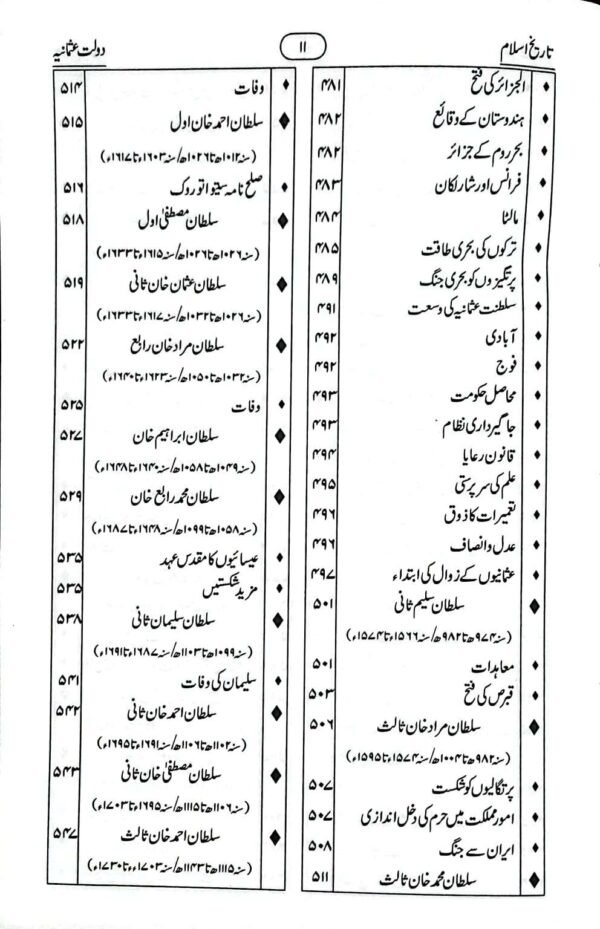 تاریخ اسلام
۱۱
دولت عثمانیہ
♦ الجزائر کی فتح ۴۸۱
♦ ہندوستان کے وقائع ۴۸۲
♦ بحر روم کے جزائر ۴۸۲
♦ فرانس اور شارلکان ۴۸۳
♦ مالٹا ۴۸۴
♦ ترکوں کی بحری طاقت ۴۸۵
♦ پرتگیزوں کو بحری جنگ ۴۸۹
♦ سلطنت عثمانیہ کی وسعت ۴۹۱
♦ آبادی ۴۹۲
♦ فوج ۴۹۲
♦ محاصل حکومت ۴۹۳
♦ جاگیرداری نظام ۴۹۳
♦ قانون رعایا ۴۹۴
♦ علم کی سرپرستی ۴۹۵
♦ تعمیرات کا ذوق ۴۹۶
♦ عدل وانصاف ۴۹۶
♦ عثمانیوں کے زوال کی ابتداء ۴۹۷
♦ سلطان سلیم ثانی ۵۰۱
(سنہ ۹۷۴ھ تا ۹۸۲ھ/سنہ ۱۵۶۶ء تا ۱۵۷۴ء)
♦ معاہدات ۵۰۱
♦ قبرص کی فتح ۵۰۳
♦ سلطان مراد خان ثالث ۵۰۶
(سنہ ۹۸۲ھ تا ۱۰۰۴ھ/سنہ ۱۵۷۴ء تا ۱۵۹۵ء)
♦ پرتگالیوں کو شکست ۵۰۷
♦ امور مملکت میں حرم کی دخل اندازی ۵۰۷
♦ ایران سے جنگ ۵۰۸
♦ سلطان محمد خان ثالث ۵۱۱
♦ وفات ۵۱۴
♦ سلطان احمد خان اول ۵۱۵
(سنہ ۱۰۱۲ھ تا ۱۰۲۶ھ/سنہ ۱۶۰۳ء تا ۱۶۱۷ء)
♦ صلح نامہ سیتواتوروک ۵۱۶
♦ سلطان مصطفیٰ اول ۵۱۸
(سنہ ۱۰۲۶ھ تا ۱۰۲۶ھ/سنہ ۱۶۱۵ء تا ۱۶۳۳ء)
♦ سلطان عثمان خان ثانی ۵۱۹
(سنہ ۱۰۲۶ھ تا ۱۰۳۲ھ/سنہ ۱۶۱۷ء تا ۱۶۳۳ء)
♦ سلطان مراد خان رابع ۵۲۲
(سنہ ۱۰۳۲ھ تا ۱۰۵۰ھ/سنہ ۱۶۲۳ء تا ۱۶۴۰ء)
♦ وفات ۵۲۵
♦ سلطان ابراہیم خان ۵۲۷
(سنہ ۱۰۴۹ھ تا ۱۰۵۸ھ/سنہ ۱۶۴۰ء تا ۱۶۴۸ء)
♦ سلطان محمد رابع خان ۵۲۹
(سنہ ۱۰۵۸ھ تا ۱۰۹۹ھ/سنہ ۱۶۴۸ء تا ۱۶۸۷ء)
♦ عیسائیوں کا مقدس عہد ۵۳۵
♦ مزید شکستیں ۵۳۵
♦ سلطان سلیمان ثانی ۵۳۸
(سنہ ۱۰۹۹ھ تا ۱۱۰۳ھ/سنہ ۱۶۸۷ء تا ۱۶۹۱ء)
♦ سلیمان کی وفات ۵۴۱
♦ سلطان احمد خان ثانی ۵۴۲
(سنہ ۱۱۰۲ھ تا ۱۱۰۶ھ/سنہ ۱۶۹۱ء تا ۱۶۹۵ء)
♦ سلطان مصطفیٰ خان ثانی ۵۴۳
(سنہ ۱۱۰۶ھ تا ۱۱۱۵ھ/سنہ ۱۶۹۵ء تا ۱۷۰۳ء)
♦ سلطان احمد خان ثالث ۵۴۷
(سنہ ۱۱۱۵ھ تا ۱۱۴۳ھ/سنہ ۱۷۰۳ء تا ۱۷۳۰ء)